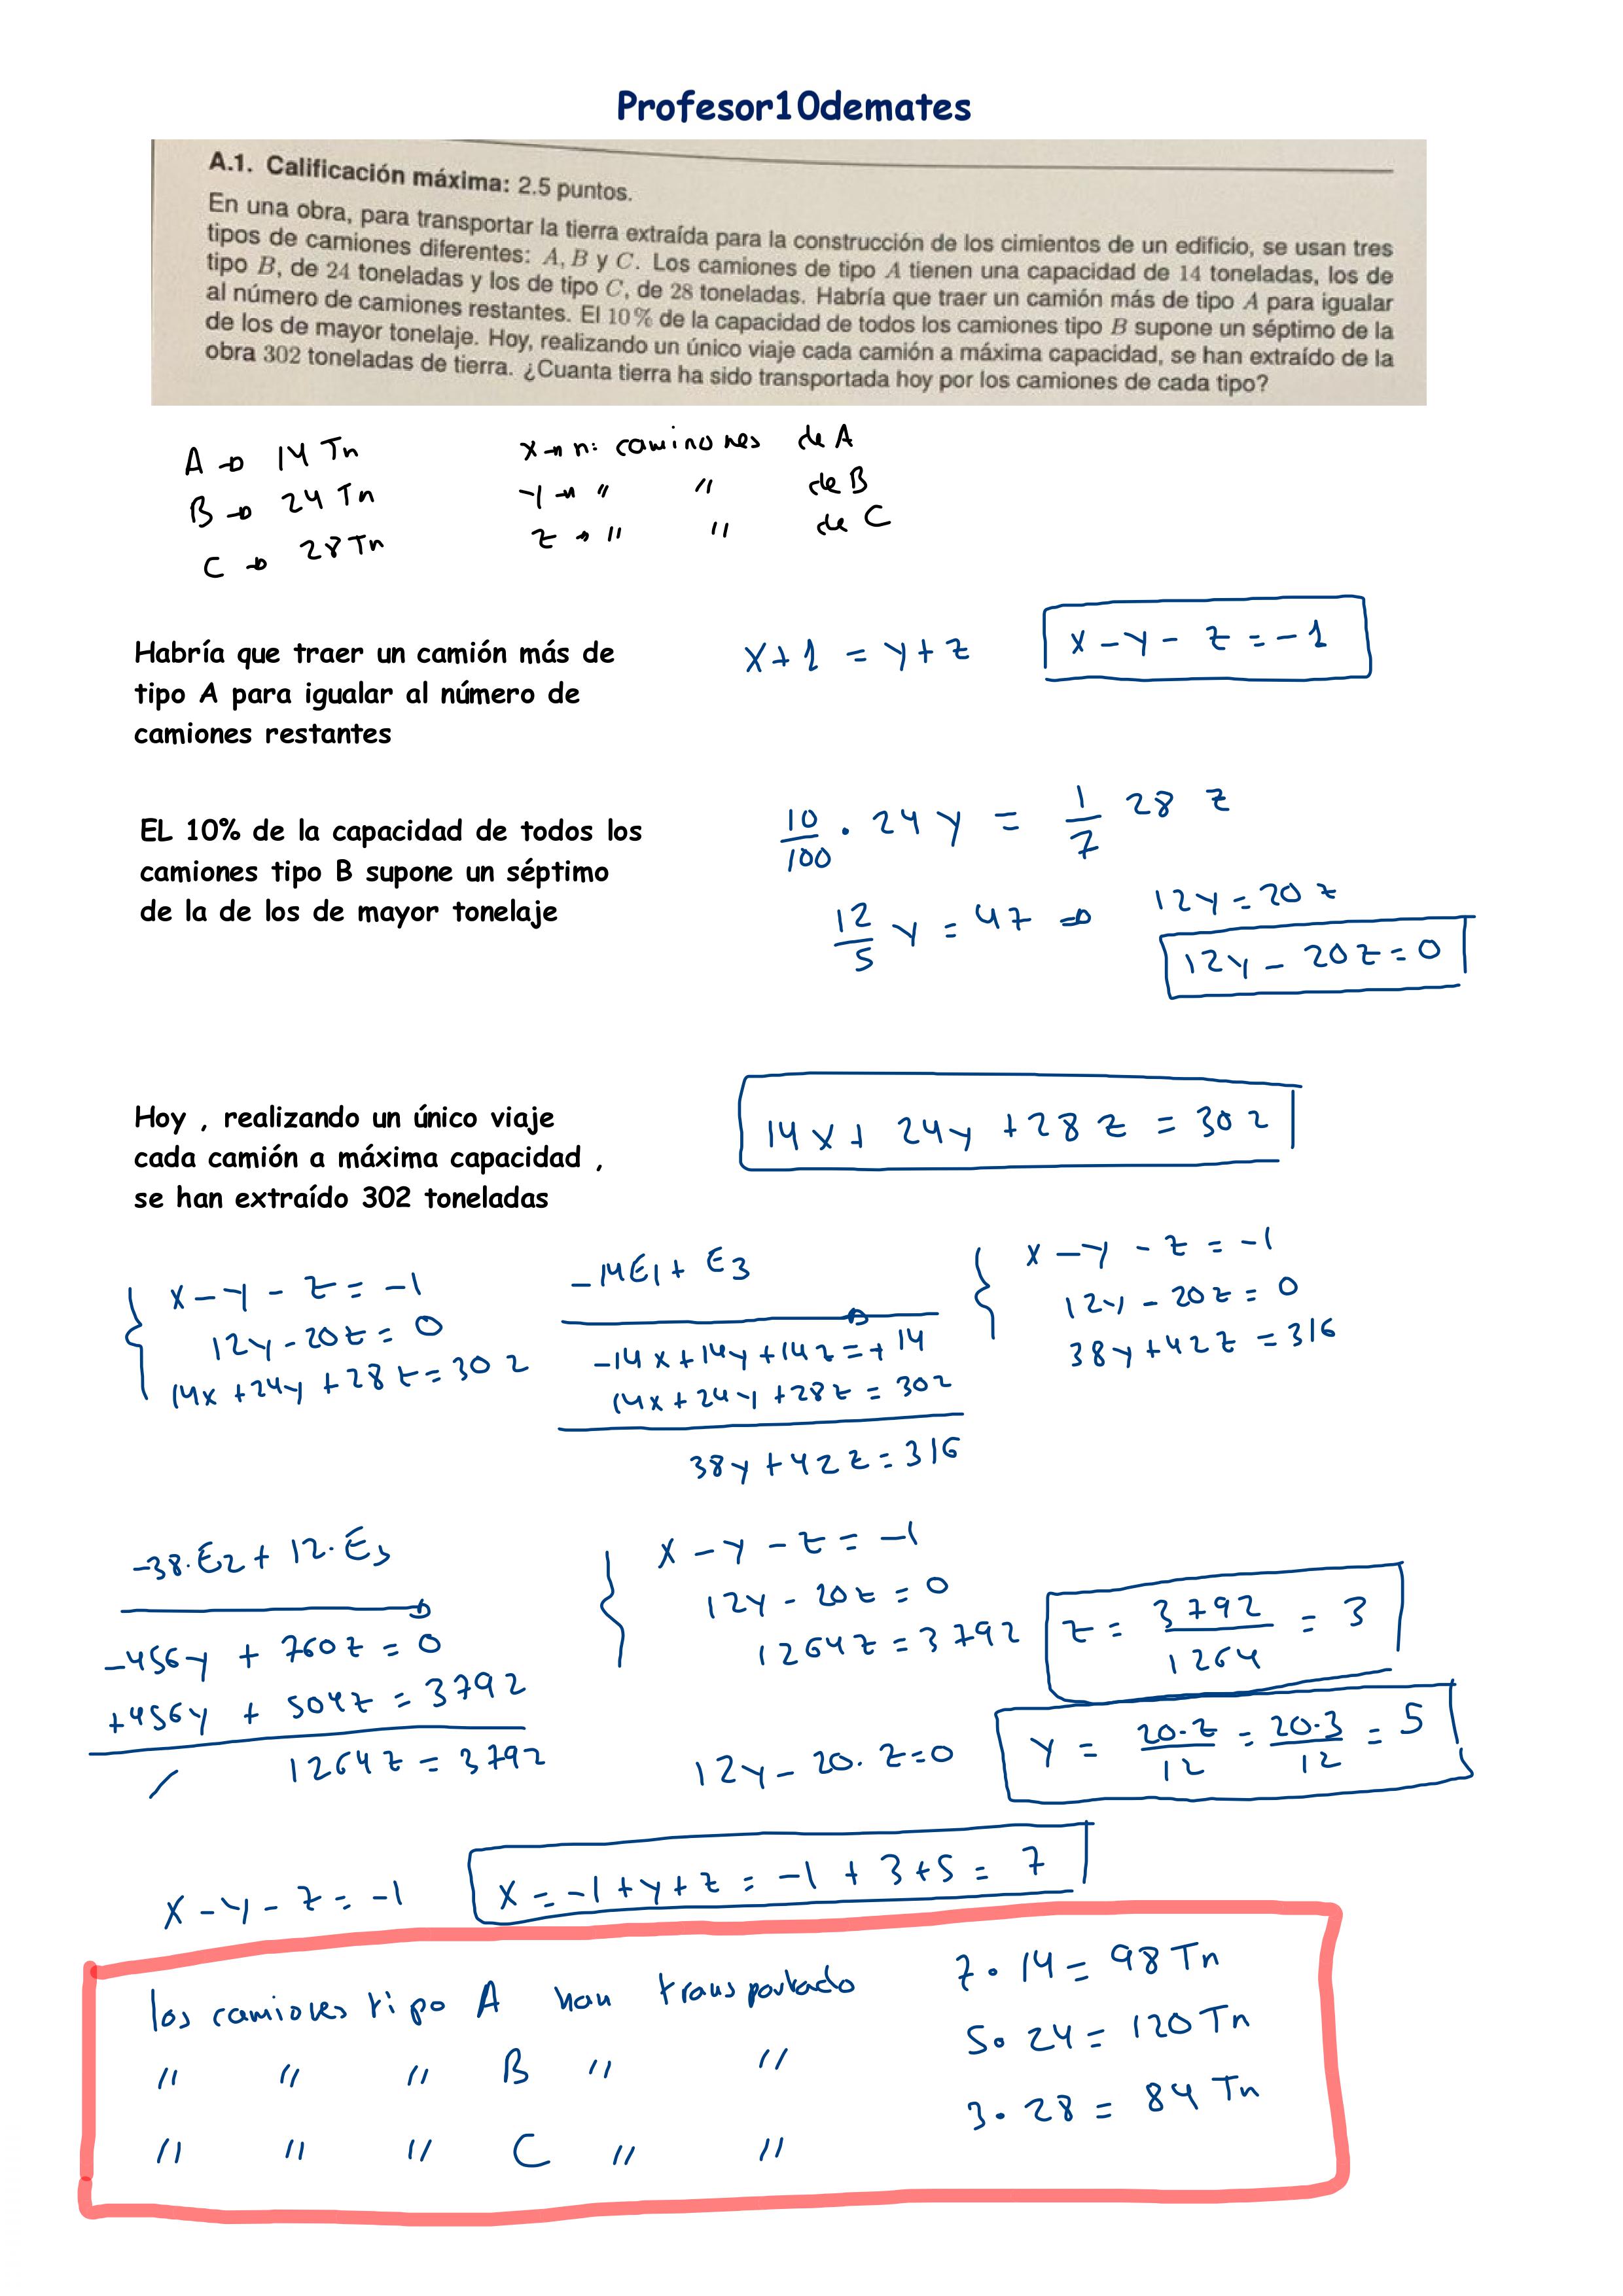 Profesor10demates
A.1. Calificación máxima: 2.5 puntos.
En una obra, para transportar la tierra extraída para la construcción de los cimientos de un edificio, se usan tres
tipos de camiones diferentes: A, B y C. Los camiones de tipo A tienen una capacidad de 14 toneladas, los de
tipo B, de 24 toneladas y los de tipo C, de 28 toneladas. Habría que traer un camión más de tipo A para igualar
al número de camiones restantes. El 10% de la capacidad de todos los camiones tipo B supone un séptimo de la
de los de mayor tonelaje. Hoy, realizando un único viaje cada camión a máxima capacidad, se han extraído de la
obra 302 toneladas de tierra. ¿Cuanta tierra ha sido transportada hoy por los camiones de cada tipo?
A → 14 Tn x → n: caminones de A
B → 24 Tn y → " " de B
C → 28 Tn z → " " de C
Habría que traer un camión más de
tipo A para igualar al número de
camiones restantes
x + 1 = y + z x - y - z = -1
EL 10% de la capacidad de todos los
camiones tipo B supone un séptimo
de la de los de mayor tonelaje
10/100 · 24 y = 1/7 28 z
12/5 y = 4z → 12y = 20 z
12y - 20z = 0
Hoy , realizando un único viaje
cada camión a máxima capacidad ,
se han extraído 302 toneladas
14x + 24y + 28 z = 302
x - y - z = -1
12y - 20z = 0
14x + 24y + 28z = 302
-14E1 + E3
-14x + 14y + 14z = + 14
14x + 24y + 28z = 302
38y + 42z = 316
x - y - z = -1
12y - 20z = 0
38y + 42z = 316
-38·E2 + 12·E3
-456y + 760z = 0
+456y + 504z = 3792
/ 1264z = 3792
x - y - z = -1
12y - 20z = 0
1264z = 3792
z = 3792/1264 = 3
12y - 20·z = 0 y = 20·z/12 = 20·3/12 = 5
x - y - z = -1 x = -1 + y + z = -1 + 3 + 5 = 7
los camiones tipo A han transportado 7·14 = 98 Tn
" " " B " " 5·24 = 120 Tn
" " " C " " 3·28 = 84 Tn